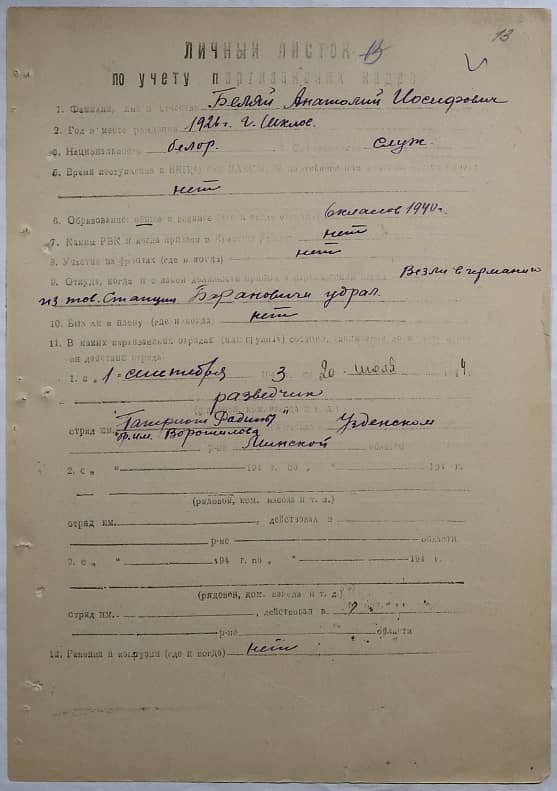 13
ЛИЧНЫЙ ЛИСТОК
по учету партизанских кадров
1. Фамилия, имя и отчество Беляй Анатолий Иосифович
2. Год и место рождения 1926 г. г. Шклов.
3. Национальность белор. служ.
5. Время поступления в
нет
6. Образование общее и военное 6 классов 1940 г.
7. Каким РВК и когда призван в Красную Армию нет
8. Участие на фронтах (где и когда) нет
9. Откуда, когда и с какой должности прибыл в Везли в германию
из тов. Станции Барановичи удрал.
10. Был ли в плену (где и когда) нет
11. В каких партизанских отрядах
действий отряда
1. с „ 1 " сентября 1943 по 20 июля 194 4
разведчик
(рядовой, ком. взвода и т. д.)
отряд им. "Патриот Радины" Узденском
бр. им. Ворошилова
р-не Минской области
2. с „ " 194 г. по „ " 194 г.
(рядовой, ком. взвода и т. д.)
отряд им. , действовал в
р-не области
3. с „ " 194 г. по „ " 194 г.
(рядовой, ком. взвода и т. д.)
отряд им. , действовал в
р-не области
12. Ранения и контузии (где и когда) нет